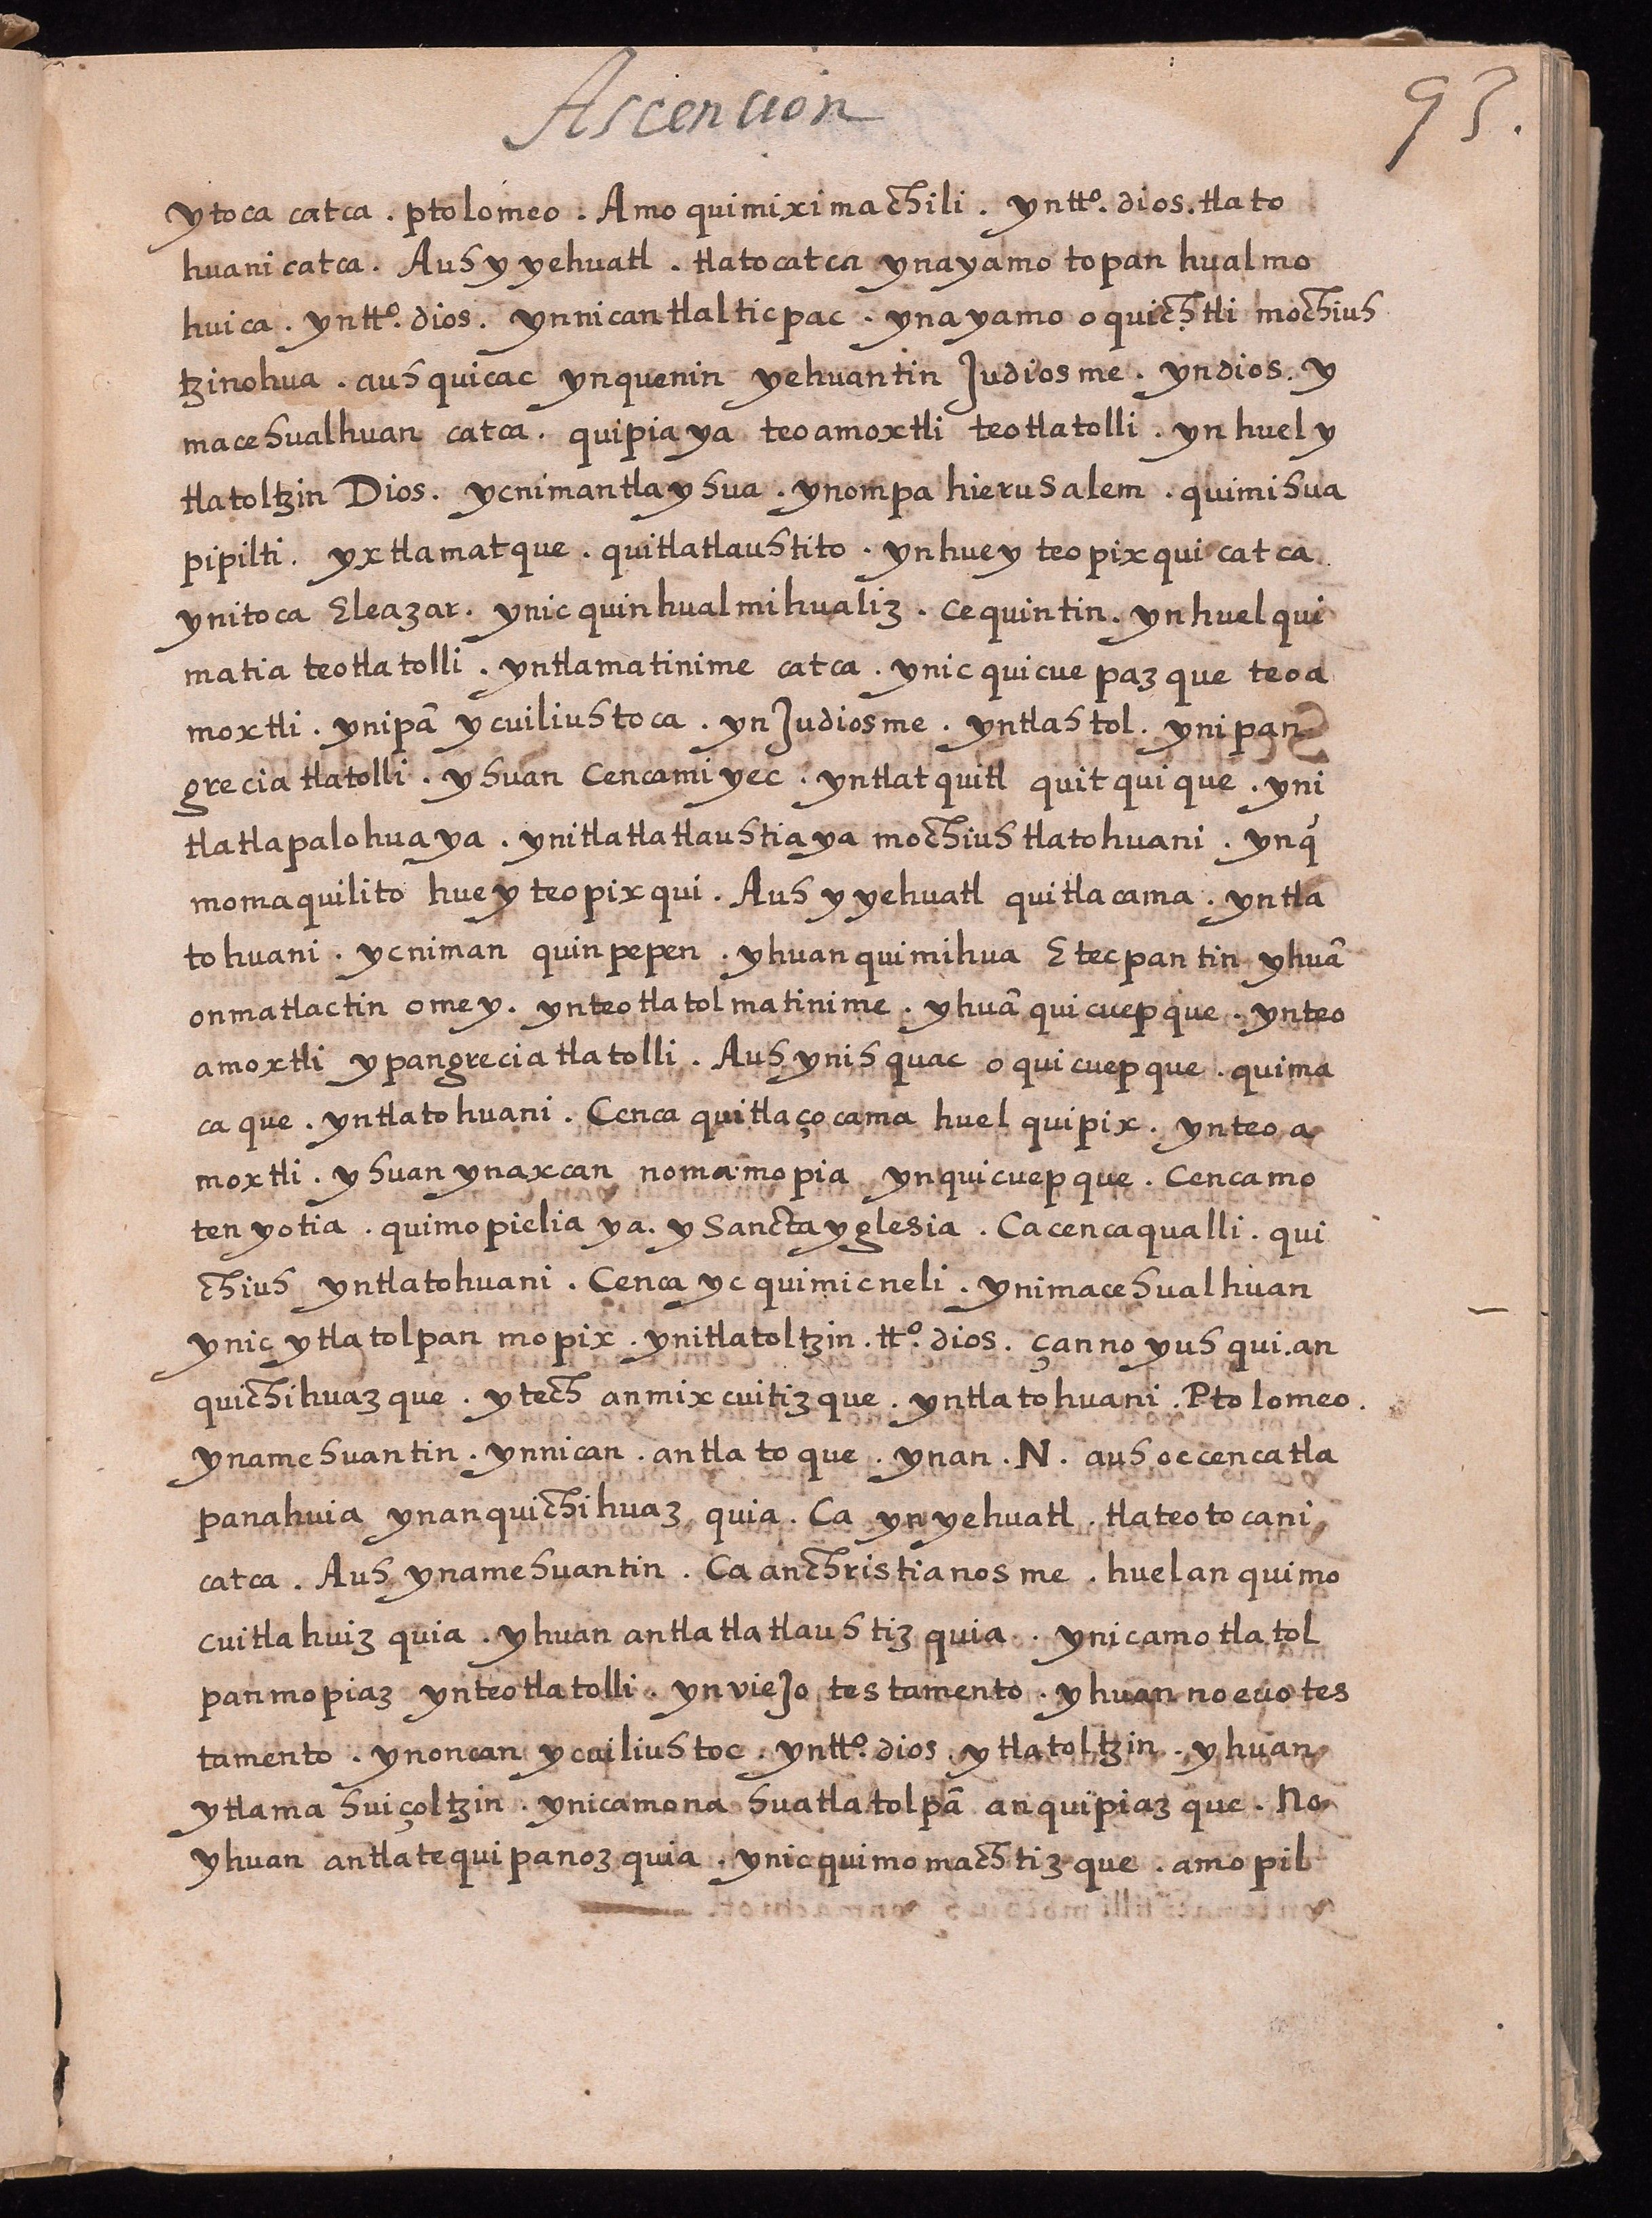 Ascencion
93.
ytoca catca . ptolomeo . Amo quimiximachili . yntto. dios . tlato
huani catca . Auh yyehuatl . tlatocatca ynayamo topan hualmo
huica . yntto. dios . ynnican tlalticpac . ynayamo oquichtli mochiuh
tzinohua . auh quicac ynquenin yehuantin Judiosme . yndios . y
macehualhuan catca . quipiaya teoamoxtli teotlatolli . ynhuel y
tlatoltzin Dios . ycnimantlayhua . ynompa hierusalem . quimihua
pipilti . yxtlamatque . quitlatlauhtito . ynhuey teopixqui catca
ynitoca Eleazar . ynic quinhualmihualiz . cequintin . ynhuelqui
matia teotlatolli . yntlamatinime catca . ynic quicuepazque teoa
moxtli . ynipã ycuiliuhtoca . ynJudiosme . yntlahtol . ynipan
grecia tlatolli . yhuan Cencamiyec . yntlatquitl quitquique . yni
tlatlapalohuaya . ynitlatlatlauhtiaya mochiuh tlatohuani . ynq́
momaquilito huey teopixqui . Auh yyehuatl quitlacama . yntla
tohuani . ycniman quinpepen . yhuan quimihua Etecpantin yhuã
onmatlactin omey . ynteotlatolmatinime . yhuã quicuepque . ynteo
amoxtli ypangrecia tlatolli . Auh ynihquac oquicuepque . quima
caque . yntlatohuani . Cenca quitlaçocama huel quipix . ynteoa
moxtli . yhuan ynaxcan nomamopia ynquicuepque . Cencamo
tenyotia . quimopielia ya . ySancta yglesia . Cacencaqualli . qui
chiuh yntlatohuani . Cenca yc quimicneli . ynimacehualhuan
ynic ytlatolpan mopix . ynitlatoltzin . tto. dios . çanno yuhqui . an
quichihuazque . ytech anmixcuitizque . yntlatohuani . Ptolomeo .
ynamehuantin . ynnican . antlatoque . ynan . N . auh occencatla
panahuia ynanquichihuaz quia . Ca ynyehuatl . tlateotocani
catca . Auh ynamehuantin . Ca anchristianosme . huelanquimo
cuitlahuiz quia . yhuan antlatlatlauhtiz quia . ynicamotlatol
panmopiaz ynteotlatolli . ynvieJo testamento . yhuan noeuotes
tamento . ynoncan ycuiliuhtoc . yntto. dios . ytlatoltzin . yhuan
ytlamahuiçoltzin . ynicamonahuatlatolpã anquipiazque . No
yhuan antlatequipanoz quia . ynicquimomachtizque . amopil